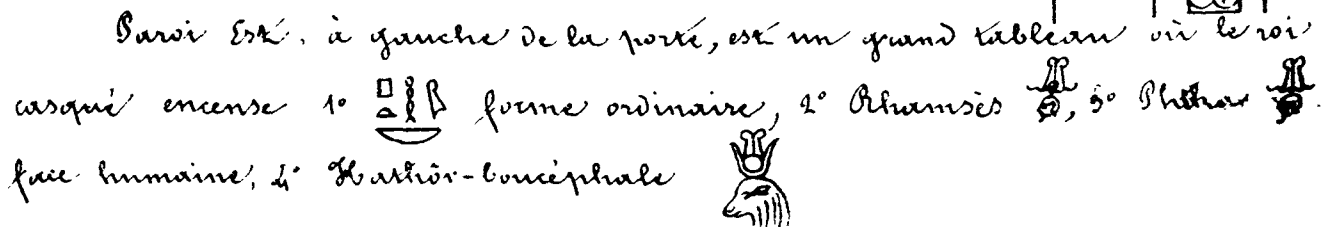 Paroi Est. à gauche de la porte, est un grand tableau où le roi
casqué encense 1° 𓊪𓏏𓎛𓆄𓎟 forme ordinaire, 2° Rhamsès, 3°
face humaine, 4° Hathôr-boucéphale